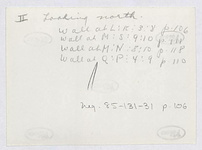 II Looking north.
Wall at L:K: 8:8 p.106
Wall at M:S: 9:10
Wall at M:N: 8:50 p.118
Wall at Q:P: 4:9 p.110
Neg. 85-131-31 p.106